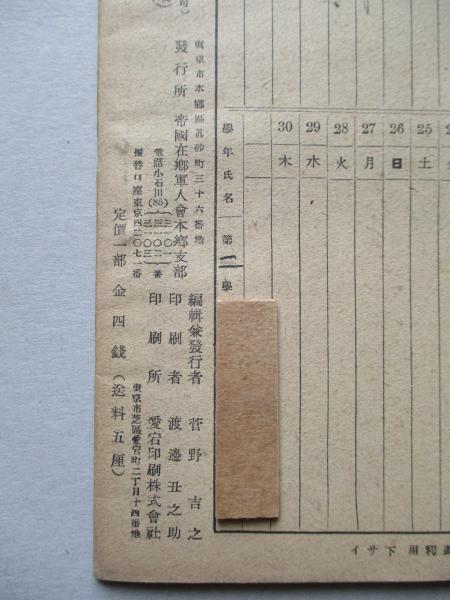 30 29 28 27 26 25
木 水 火 月 日 土
學年氏名 第二學
利用下サイ
編輯兼發行者 菅野吉之
印刷者 渡邊丑之助
印刷所 愛宕印刷株式會社
東京市芝區愛宕町二丁目十四番地
東京市本鄕區眞砂町三十六番地
發行所 帝國在鄕軍人會本鄕支部
電話小石川(85)
番
振替口座東京四二〇七一番
定價一部 金四錢(送料五厘)